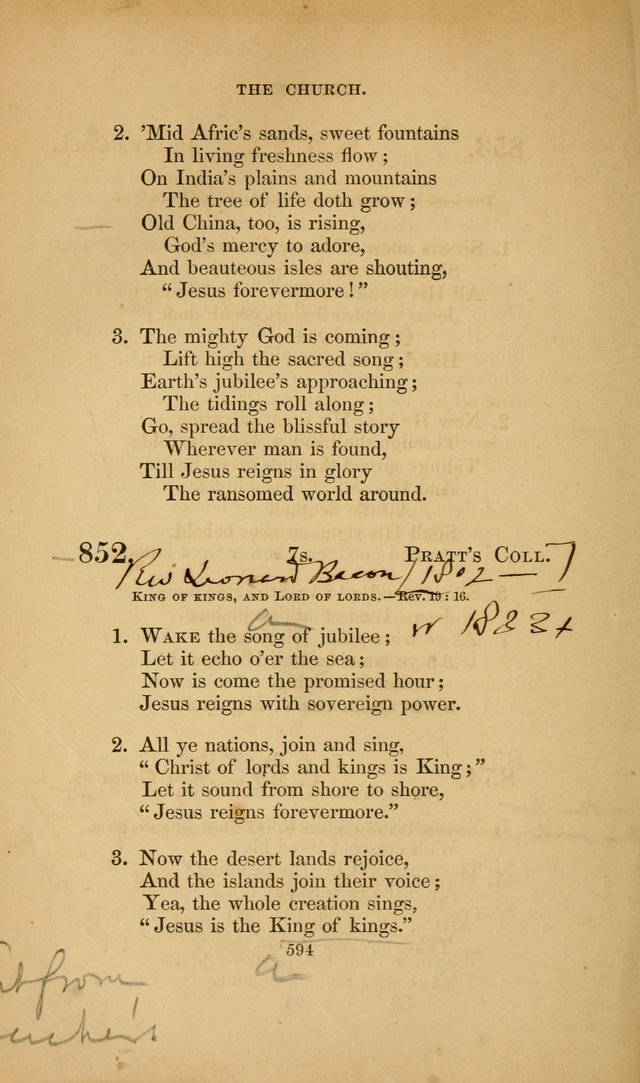 THE CHURCH.
2. 'Mid Afric's sands, sweet fountains
In living freshness flow;
On India's plains and mountains
The tree of life doth grow;
Old China, too, is rising,
God's mercy to adore,
And beauteous isles are shouting,
"Jesus forevermore!"
3. The mighty God is coming;
Lift high the sacred song;
Earth's jubilee's approaching;
The tidings roll along;
Go, spread the blissful story
Wherever man is found,
Till Jesus reigns in glory
The ransomed world around.
852. 7s. PRATT'S COLL.
Rev Leonard Bacon / 1802 —
KING OF KINGS, AND LORD OF LORDS.—REV. 19: 16.
1823
a
1. WAKE the song of jubilee;
Let it echo o'er the sea;
Now is come the promised hour;
Jesus reigns with sovereign power.
2. All ye nations, join and sing,
"Christ of lords and kings is King;"
Let it sound from shore to shore,
"Jesus reigns forevermore."
3. Now the desert lands rejoice,
And the islands join their voice;
Yea, the whole creation sings,
"Jesus is the King of kings."
594
a
from